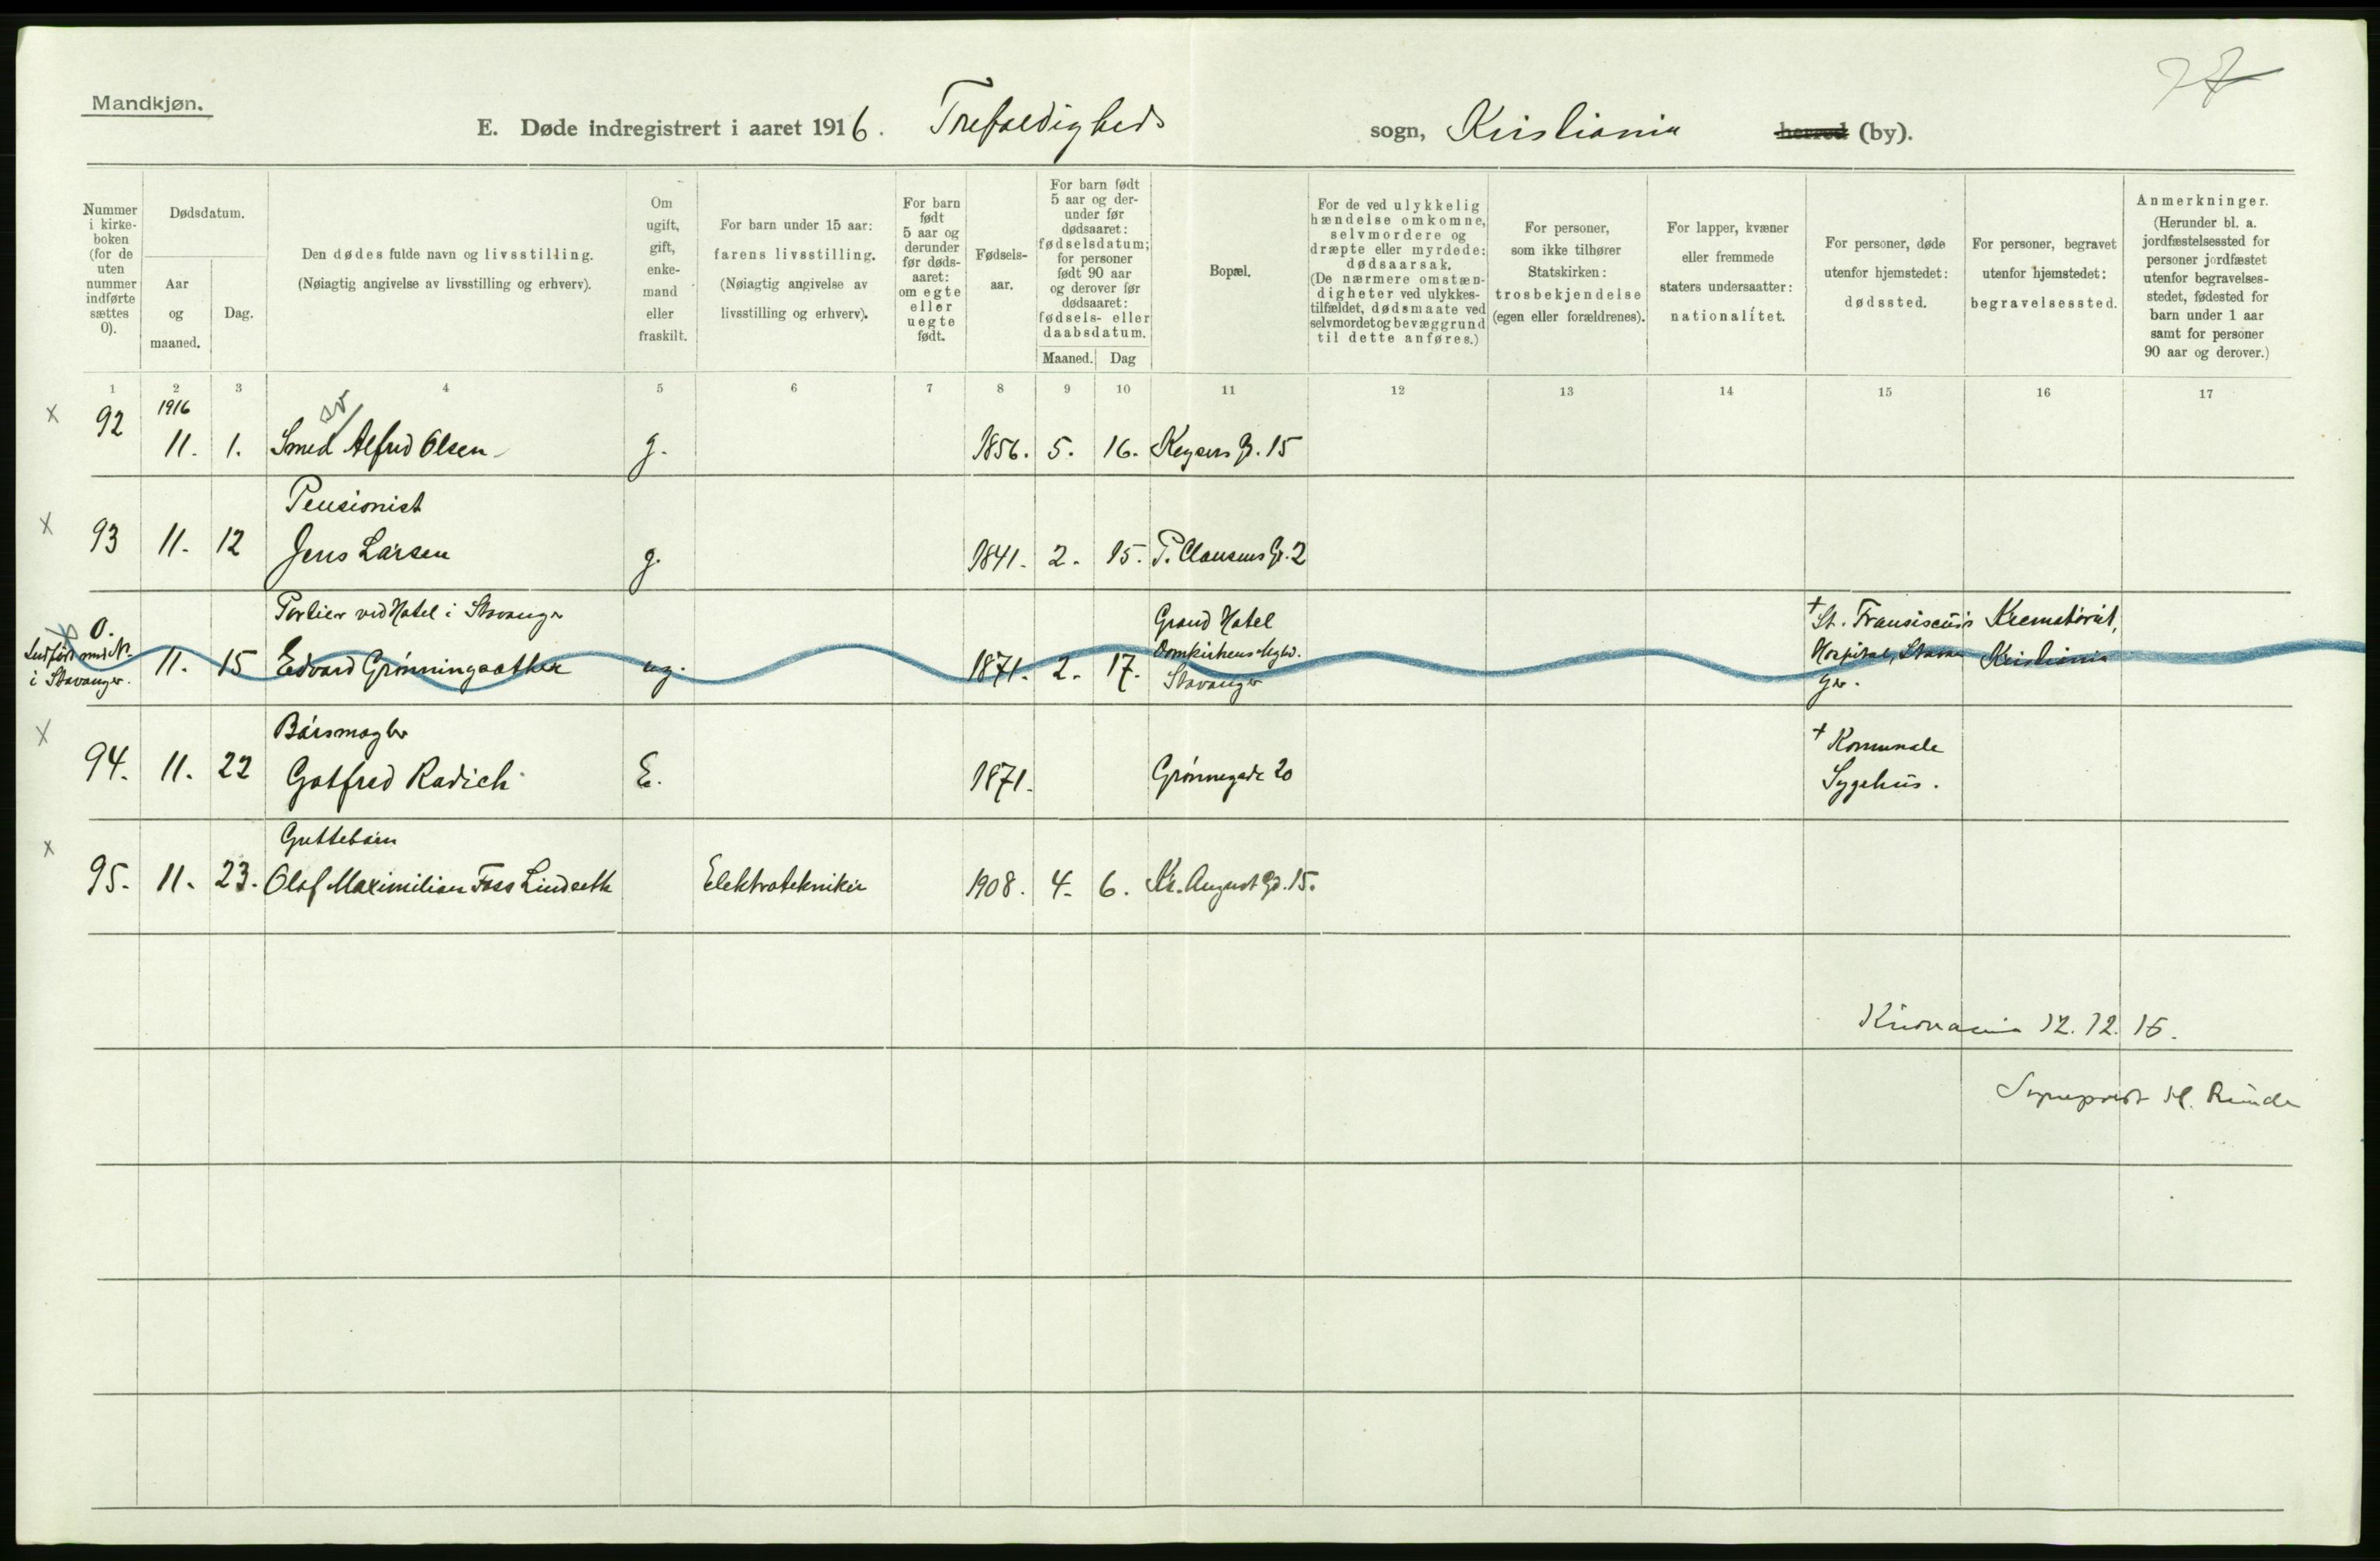 Mandkjøn.
E. Døde indregistrert i aaret 1916. Trefoldigheds sogn, Kristiania herred (by).
Nummer i kirke-boken (for de uten nummer indførte sættes 0).
Dødsdatum.
Aar og maaned.
Dag.
Den dødes fulde navn og livsstilling.
(Nøiagtig angivelse av livsstilling og erhverv).
Om ugift, gift, enke-mand eller fraskilt.
For barn under 15 aar: farens livsstilling.
(Nøiagtig angivelse av livsstilling og erhverv).
For barn født 5 aar og derunder før døds-aaret: om egte eller uegte født.
Fødsels-aar.
For barn født 5 aar og der-under før dødsaaret: fødselsdatum; for personer født 90 aar og derover før dødsaaret: fødsels- eller daabsdatum.
Maaned. Dag
Bopæl.
For de ved ulykkelig hændelse omkomne, selvmordere og dræpte eller myrdede: dødsaarsak.
(De nærmere omstæn-digheter ved ulykkes-tilfældet, dødsmaate ved selvmordet og bevæggrund til dette anføres.)
For personer, som ikke tilhører Statskirken: trosbekjendelse (egen eller forældrenes).
For lapper, kvæner eller fremmede staters undersaatter: nationalitet.
For personer, døde utenfor hjemstedet: dødssted.
For personer, begravet utenfor hjemstedet: begravelsessted.
Anmerkninger.
(Herunder bl. a. jordfæstelsessted for personer jordfæstet utenfor begravelses-stedet, fødested for barn under 1 aar samt for personer 90 aar og derover.)
1 2 3 4 5 6 7 8 9 10 11 12 13 14 15 16 17
1916
x 92 11. 1. Smed Alfred Olsen g. 1856. 5. 16. Keysers G. 15
Pensionist
x 93 11. 12 Jens Larsen g. 1841. 2. 15. P. Clausens G. 2
0. Portier ved Hotel i Stavanger Grand Hotel † St. Fransiscus Krematoriet,
Indført med Nr. 11. 15 Edvard Grønningsæther ug. 1871. 2. 17. Domkirkens Hospital, Stavan Kristiania
i Stavanger. Stavanger ger.
Børsmægler † Kommunale
x 94. 11. 22 Gotfred Radich E. 1871. Grønnegade 20 Sygehus.
Guttebarn
x 95. 11. 23. Olaf Maximilian Foss Lindseth Elektrotekniker 1908. 4. 6. Kr. August Gd. 15.
Kristiania 12.12.16.
Sogneprest